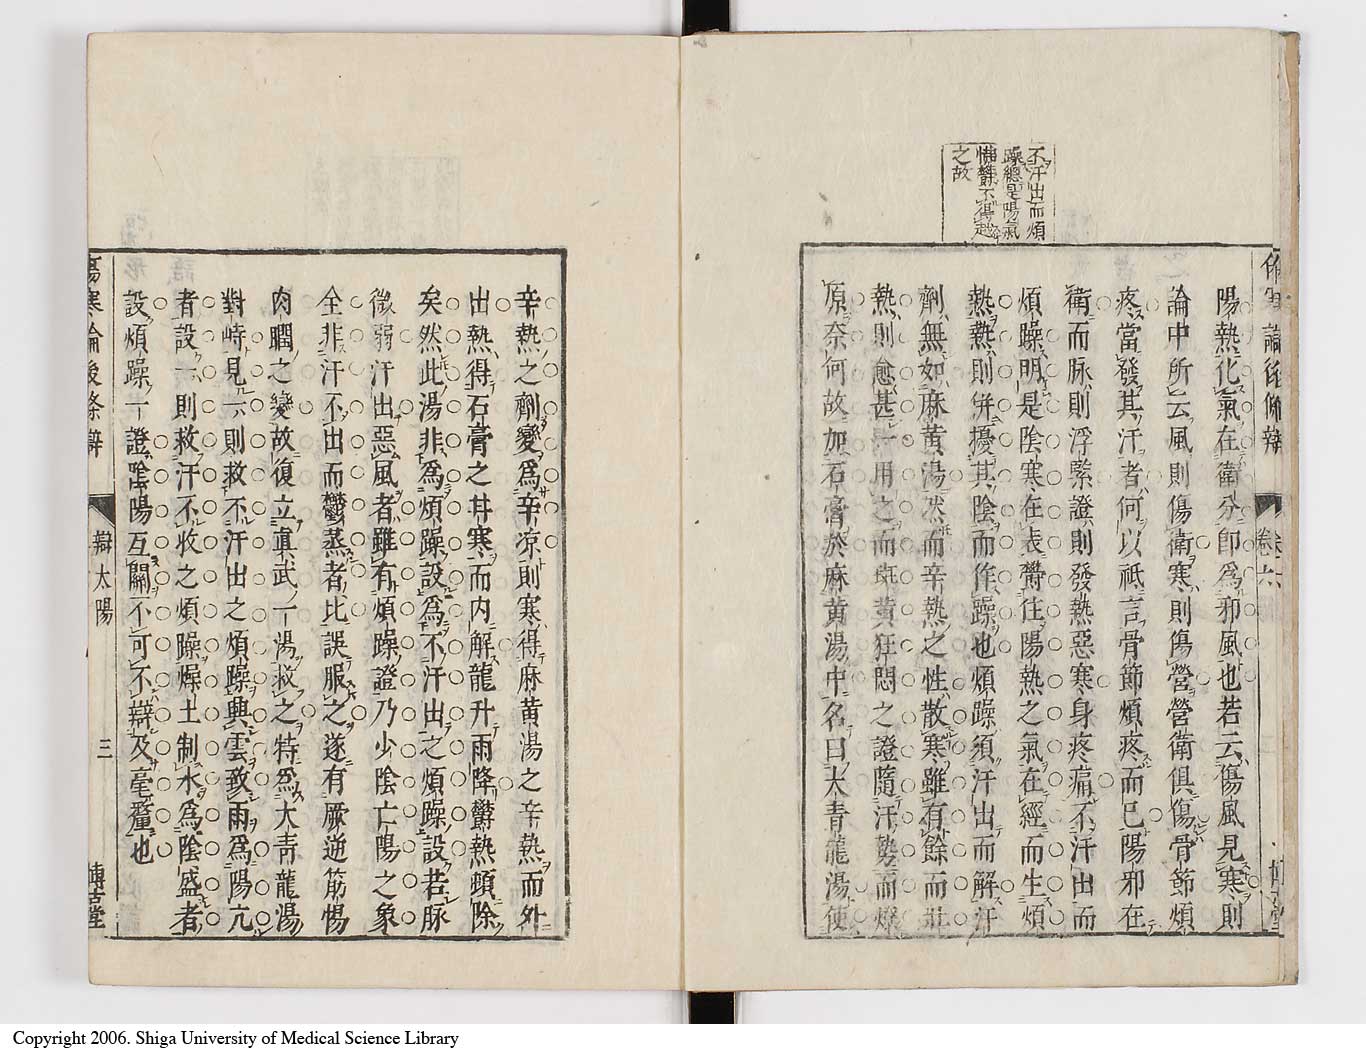 不汗出而煩
躁總是陽氣
怫鬱不得越
之故
陽熱化氣在衛分卽爲邪風也若云傷風見寒則
論中所云風則傷衛寒則傷營營衛俱傷骨節煩
疼當發其汗者何以祇言骨節煩疼而已陽邪在
衛而脉則浮緊證則發熱惡寒身疼痛不汗出而
煩躁明是陰寒在表鬱住陽熱之氣在經而生煩
熱熱則併擾其陰而作躁也煩躁須汗出而解汗
劑無如麻黃湯然而辛熱之性散寒雖有餘而壯
熱則愈甚一用之而斑黃狂悶之證隨汗勢而燥
原奈何故加石膏於麻黃湯中名曰大青龍湯使
辛熱之劑變爲辛凉則寒得麻黃湯之辛熱而外
出熱得石膏之甘寒而内解龍升雨降鬱熱頓除
矣然此湯非爲煩躁設爲不汗出之煩躁設若脉
微弱汗出惡風者雖有煩躁證乃少陰亡陽之象
全非汗不出而鬱蒸者比誤服之遂有厥逆筋惕
肉瞤之變故復立眞武一湯救之特爲大青龍湯
對峙見一則救不汗出之煩躁興雲致雨爲陽亢
者設一則救汗不收之煩躁燥土制水爲陰盛者
設煩躁一證陰陽互關不可不辯及毫釐也
傷寒論後條辯
辯太陽
三
博古堂
卷六
Copyright 2006. Shiga University of Medical Science Library